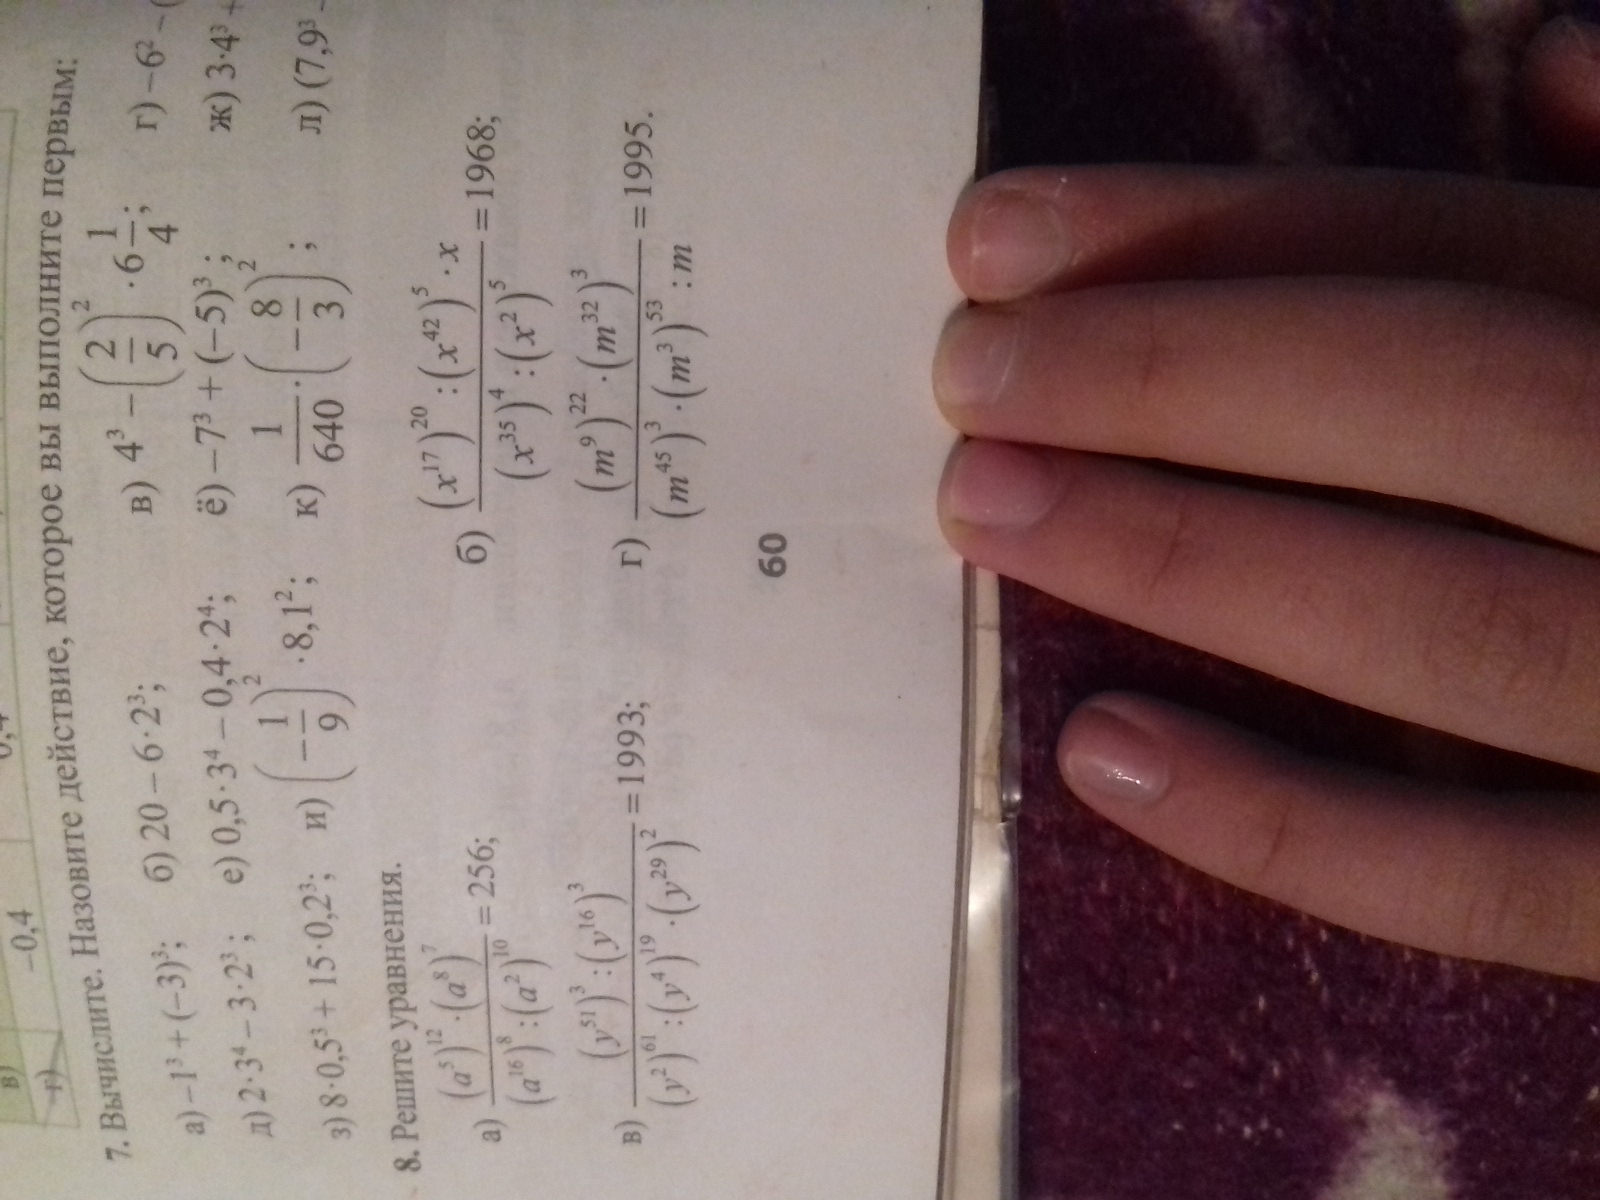 в)
г)
−0,4
0,4
7. Вычислите. Назовите действие, которое вы выполните первым:
а) −1³ + (−3)³; б) 20 − 6·2³; в) 4³ − (2/5)² · 6 1/4; г) −6² −
д) 2·3⁴ − 3·2³; е) 0,5·3⁴ − 0,4·2⁴; ё) −7³ + (−5)³; ж) 3·4³ +
з) 8·0,5³ + 15·0,2³; и) (−1/9)² · 8,1²; к) 1/640 · (−8/3)²; л) (7,9³ −
8. Решите уравнения.
а) ((a⁵)¹² · (a⁸)⁷)/((a¹⁶)⁸ : (a²)¹⁰) = 256; б) ((x¹⁷)²⁰ : (x⁴²)⁵ · x)/((x³⁵)⁴ : (x²)⁵) = 1968;
в) ((y⁵¹)³ : (y¹⁶)³)/((y²)⁶¹ : (y⁴)¹⁹ · (y²⁹)²) = 1993; г) ((m⁹)²² · (m³²)³)/((m⁴⁵)³ · (m³)⁵³ : m) = 1995.
60